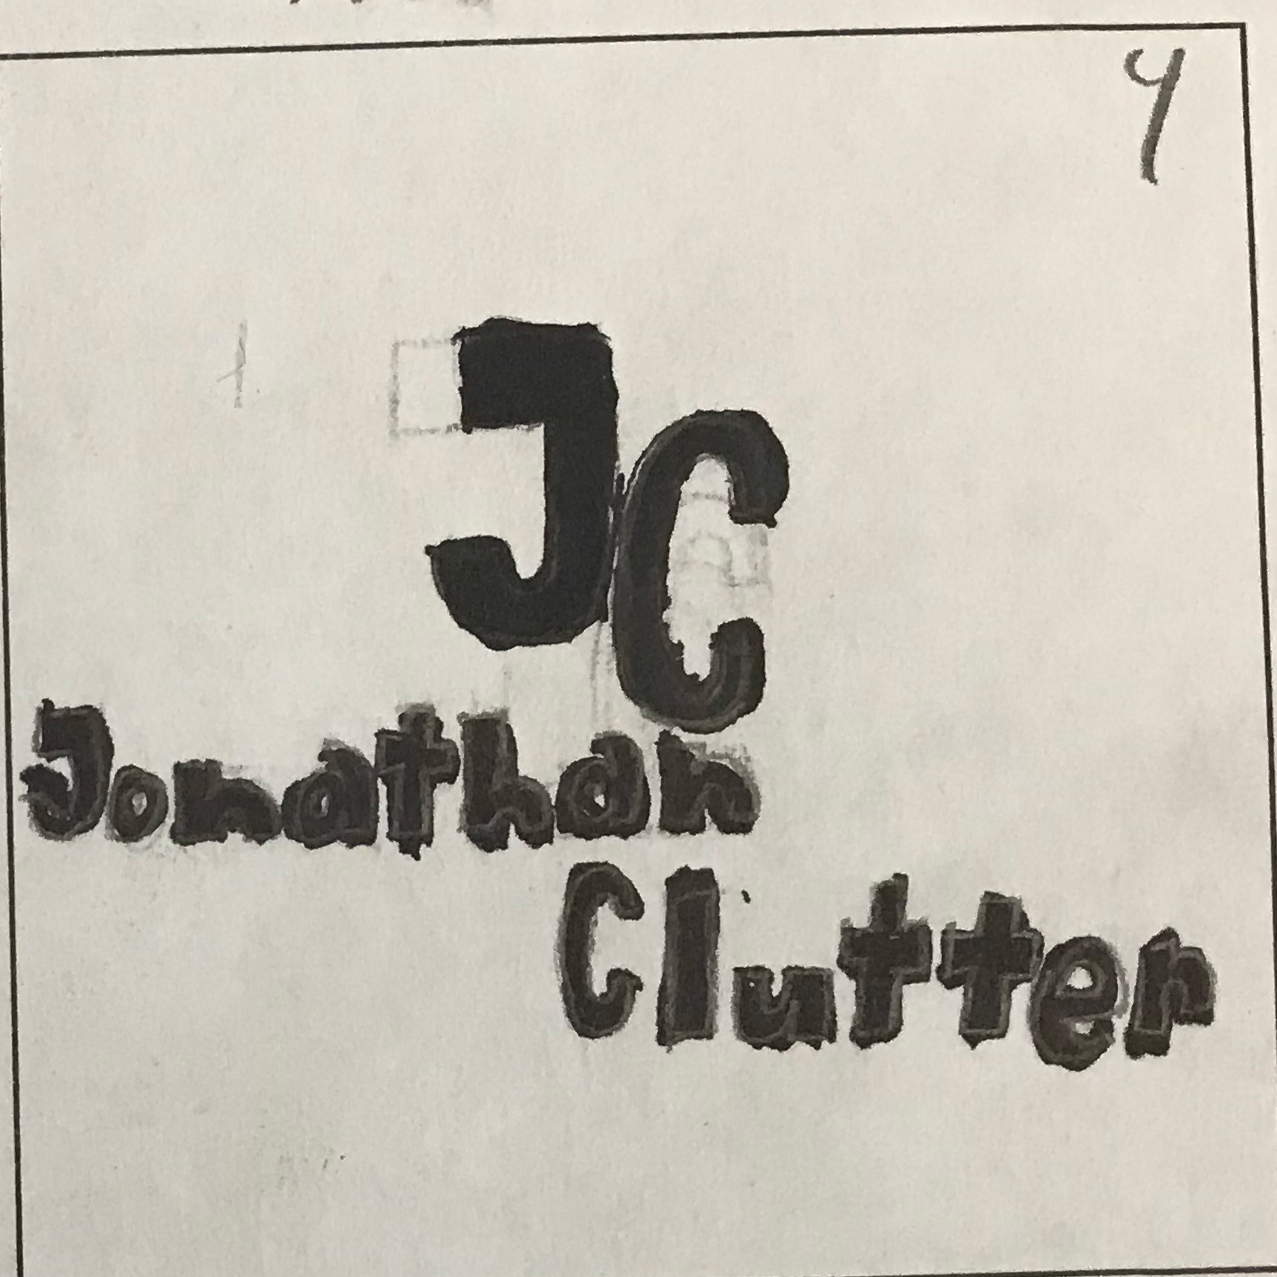 4
JC
Jonathan
Clutter